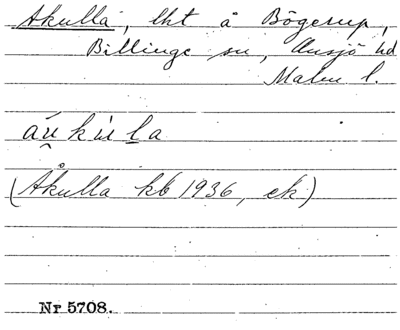 Åkulla, lht å Bögerup,
Billinge sn, Onsjö hd
Malm l.
áu̯kùl̲a
(Åkulla kb 1936, ek)
Nr 5708.